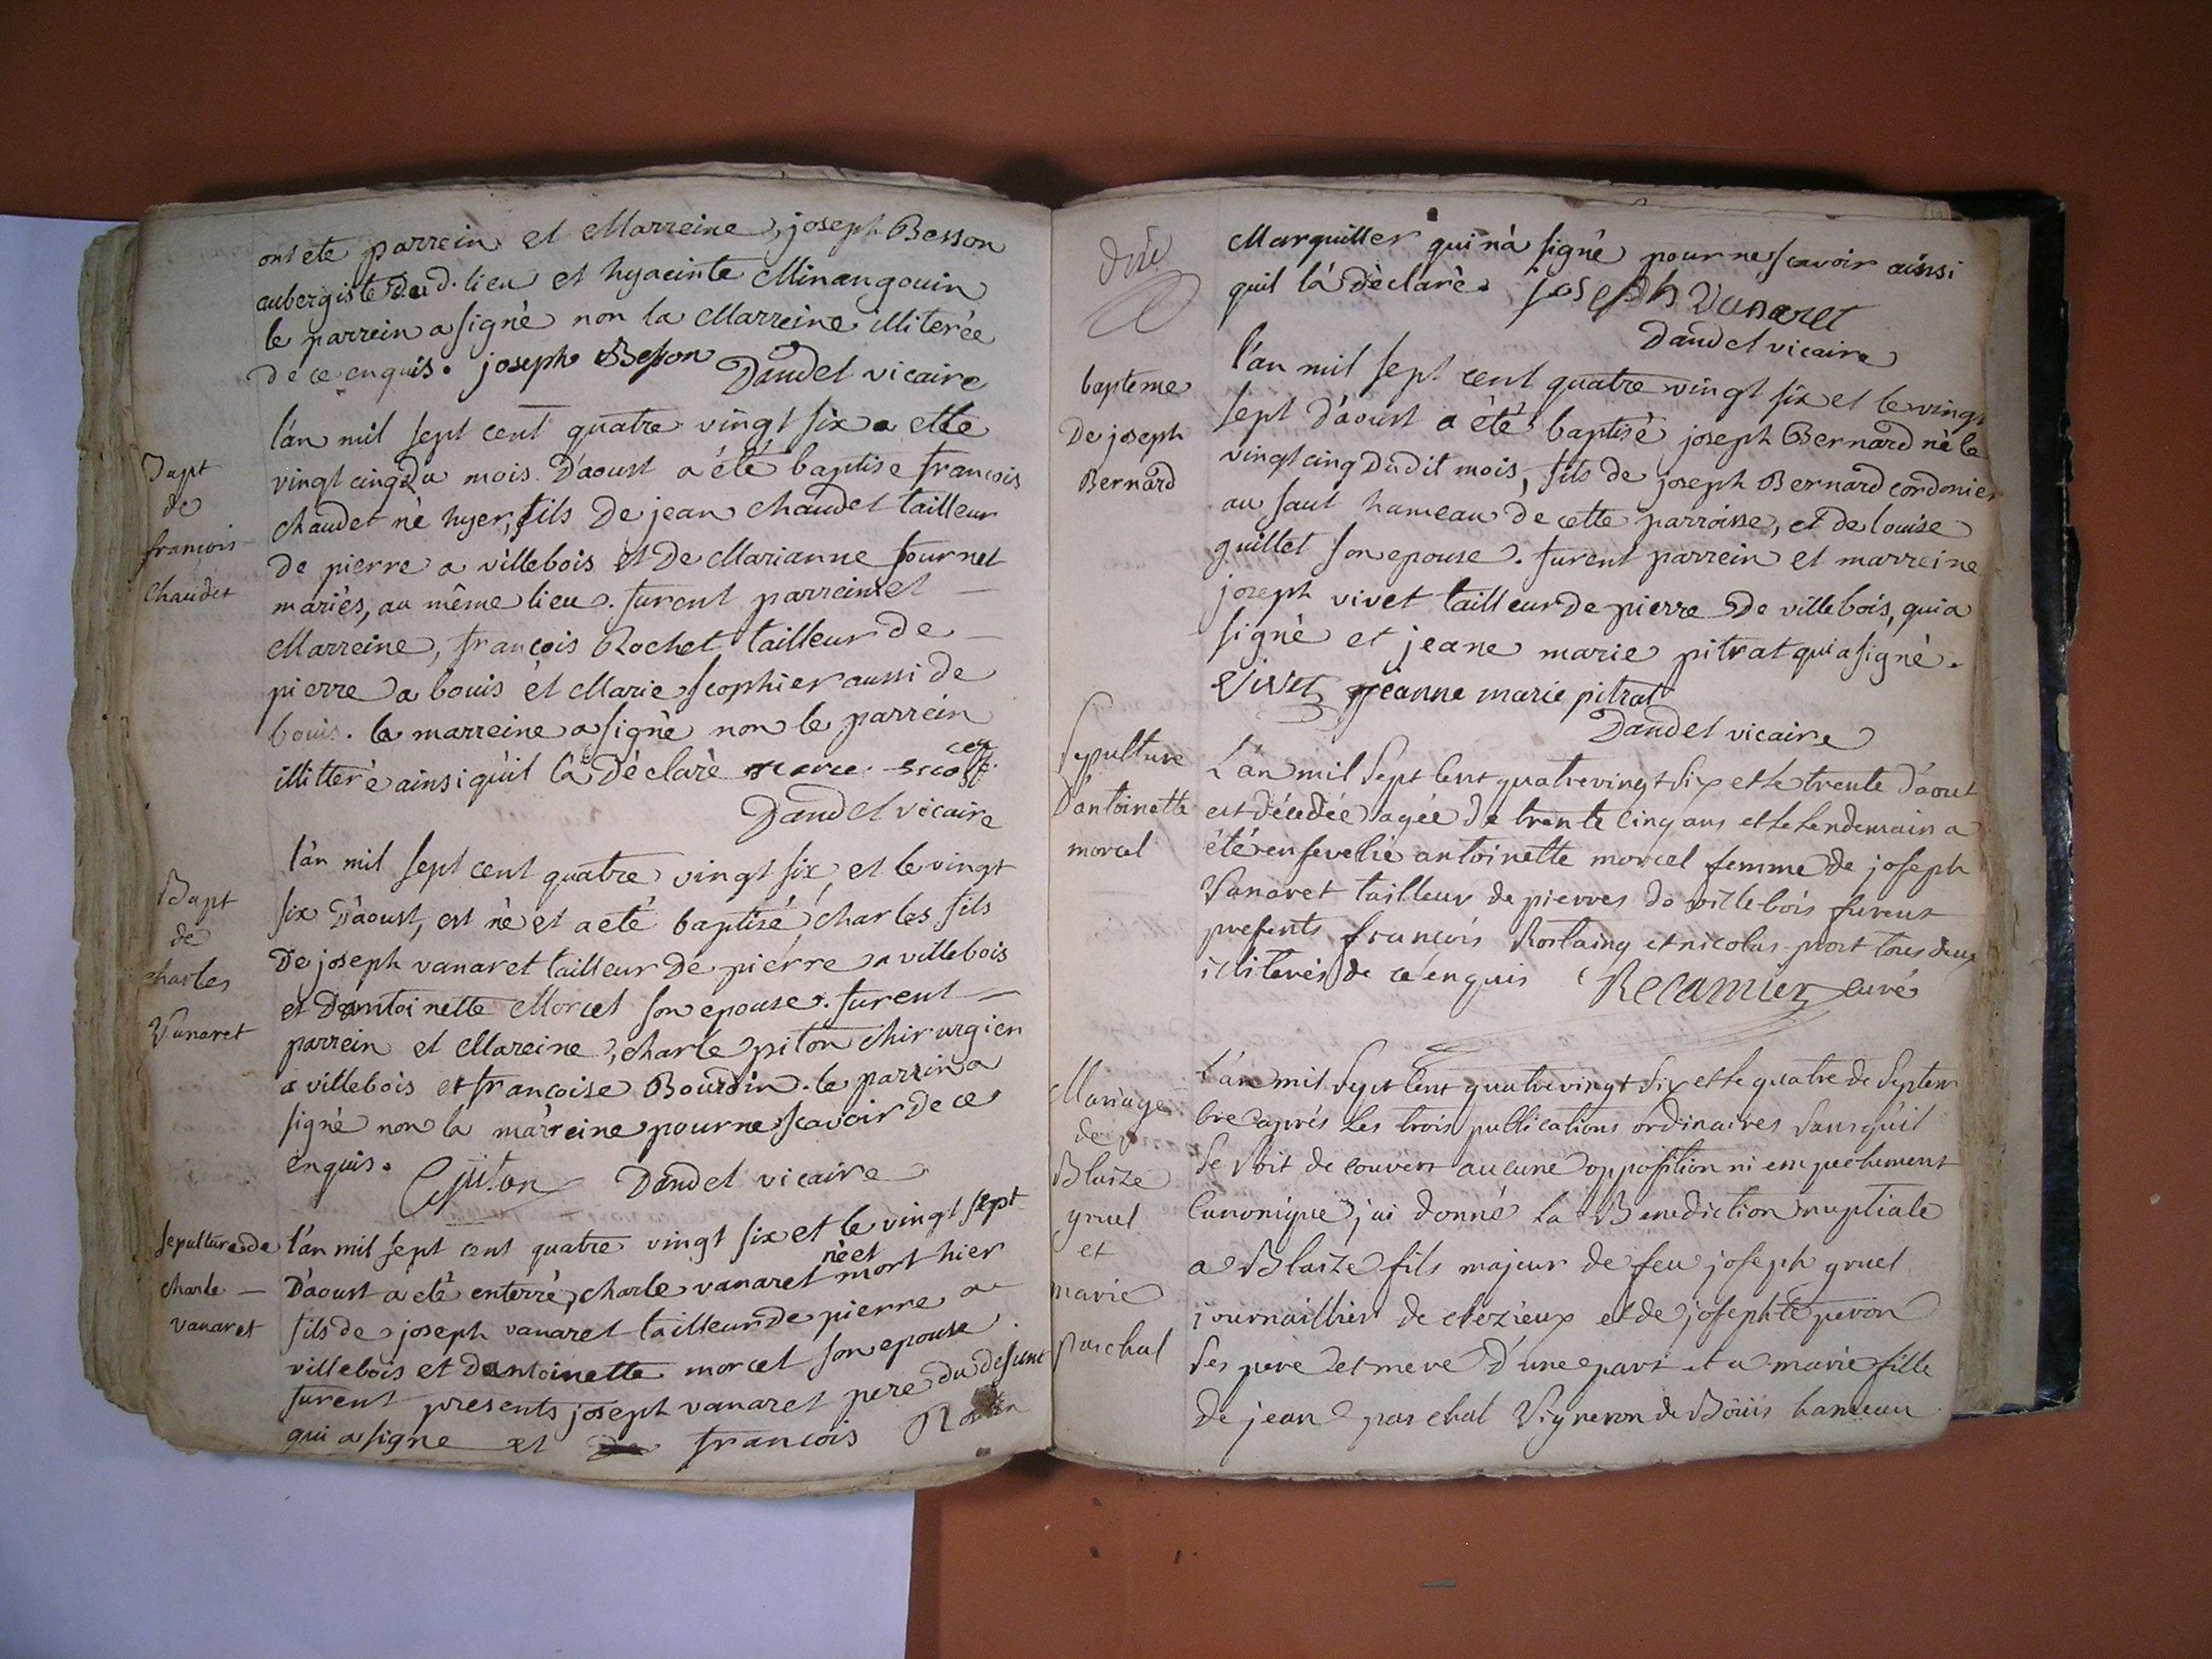 ont ete parrein et Marreine, joseph Besson
aubergiste dud. lieu et hyacinte Minangouin
le parrein a signè non la Marreine illiterée
de ce enquis. joseph Besson Dandel vicaire
Bapt
de
francois
Chaudet
l'an mil sept cent quatre vingt six et le
vingt cinq du mois D'aoust a été baptise francois
chaudet nè hyer, fils De jean chaudet tailleur
de pierre a villebois et De Marianne fournet
mariès, au même lieu. furent parrein et
Marreine, françois Rochet tailleur de
pierre a bouis et Marie scophier aussi de
bouis. la marreine a signè non le parrein
illitterè ainsi qu'il la dèclarè
Dandel vicaire
Bapt
de
charles
Vanaret
l'an mil sept cent quatre vingt six, et le vingt
six D'aoust, est nè et a eté baptisé, charles fils
De joseph vanaret tailleur De pierre a villebois
et D'antoinette Morcel son epouse. furent
parrein et Mareine, charle piton chirurgien
a villebois et françoise Bourdin. le parrin a
signè non la marreine pour ne scavoir de ce
enquis. Cpiton Dandel vicaire
Sepulture de
charle
vanaret
l'an mil sept cent quatre vingt six et le vingt sept
D'aoust a èté enterrè, charle vanaret nè et mort hier
fils de joseph vanaret tailleur de pierre a
villebois et d'antoinette morcel son epouse.
furent presents joseph vanaret pere du defunt
qui a signe et francois
Marguiller qui n'a signè pour ne scavoir ainsi
quil la dèclarè. joseph Vanaret
Dandel vicaire
bapteme
De joseph
Bernard
l'an mil sept cent quatre vingt six et le vingt
sept D'aoust a été baptisè joseph Bernard nè le
vingt cinq Dudit mois, fils de joseph Bernard cordonier
au saut hameau de cette parroisse, et de louise
guillet son epouse. furent parrein et marreine
joseph vivet tailleur de pierre de villebois, qui a
signè et jeane marie pitrat qui a signè.
Vivet jeanne marie pitrat
Dandel vicaire
Sepulture
d'antoinette
morcel
L'an mil sept cent quatrevingt six et le trente d'aout
est décédée agée de trente cinq ans et le lendemain a
été ensevelie antoinette morcel femme de joseph
Vanaret tailleur de pierres de villebois furent
presents francois Rostaing et nicolas mort tous deux
illiterés de ce enquis Recamier curé
Mariage
de
Blaize
gruel
et
marie
paschal
L'an mil sept cent quatrevingt six et le quatre de septem
bre après les trois publications ordinaires sans qu'il
se soit decouvert aucune opposition ni empechement
Canonique j'ai donné la Benediction nuptiale
a Blaize fils majeur de feu joseph gruel
journaillier de clezieux et de josephte peron
ses pere et mere d'une part et a marie fille
de jean paschal Vigneron de Bôuis hameau